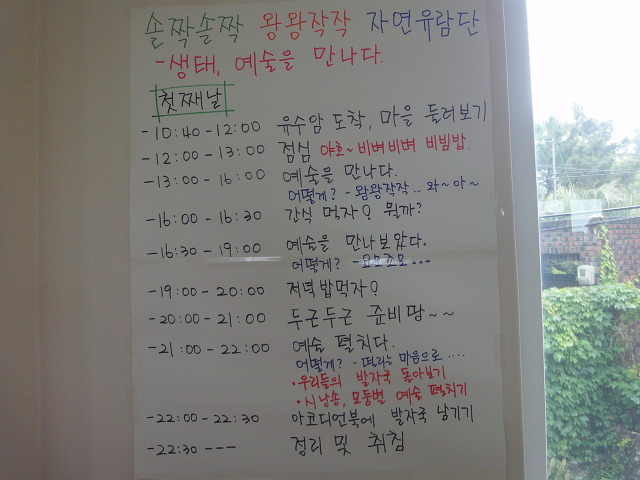 솔짝솔짝 왕왕작작 자연유람단
-생태, 예술을 만나다.
첫째날
-10:40-12:00 유수암 도착, 마을 둘러보기
-12:00-13:00 점심 야호~비벼비벼 비빔밥.
-13:00-16:00 예술을 만나다.
어떻게? -왕왕작작... 와~아~
-16:00-16:30 간식 먹자? 뭘까?
-16:30-19:00 예술을 만나보았다.
어떻게? -요모조모...
-19:00-20:00 저녁밥먹자?
-20:00-21:00 두근두근 준비땀~~
-21:00-22:00 예술 펼치다.
어떻게? -떨리는 마음으로....
·우리들의 발자국 돌아보기
·시낭송, 모둠별 예술 펼치기
-22:00-22:30 아코디언북에 발자국 남기기
-22:30--- 정리 및 취침